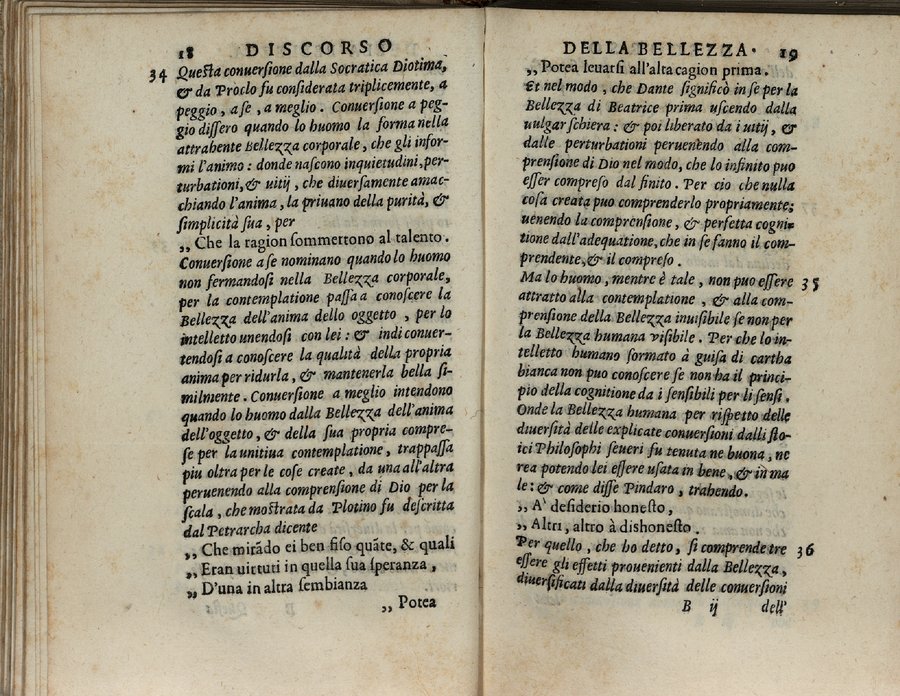 18 DISCORSO
34 Queſta conuerſione dalla Socratica Diotima,
& da Proclo fu conſiderata triplicemente, a
peggio, a ſe, a meglio. Conuerſione a peg-
gio diſſero quando lo huomo la forma nella
attrahente Bellezza corporale, che gli infor-
mi l'animo: donde naſcono inquietudini, per-
turbationi, & uitij, che diuerſamente amac-
chiando l'anima, la priuano della purità, &
ſimplicità ſua, per
,, Che la ragion ſommettono al talento.
Conuerſione a ſe nominano quando lo huomo
non fermandoſi nella Bellezza corporale,
per la contemplatione paſſa a conoſcere la
Bellezza dell'anima dello oggetto, per lo
intelletto unendoſi con lei: & indi conuer-
tendoſi a conoſcere la qualità della propria
anima per ridurla, & mantenerla bella ſi-
milmente. Conuerſione a meglio intendono
quando lo huomo dalla Bellezza dell'anima
dell'oggetto, & della ſua propria compre-
ſe per la unitiua contemplatione, trappaſſa
piu oltra per le coſe create, da una all'altra
peruenendo alla comprenſione di Dio per la
ſcala, che moſtrata da Plotino fu deſcritta
dal Petrarcha dicente
,, Che mirādo ei ben fiſo quāte, & quali
,, Eran uirtuti in quella ſua ſperanza,
,, D'una in altra ſembianza
,, Potea
DELLA BELLEZZA. 19
,, Potea leuarſi all'alta cagion prima.
Et nel modo, che Dante ſignificò in ſe per la
Bellezza di Beatrice prima uſcendo dalla
uulgar ſchiera: & poi liberato da i uitij, &
dalle perturbationi peruenendo alla com-
prenſione di Dio nel modo, che lo infinito puo
eſſer compreſo dal finito. Per cio che nulla
coſa creata puo comprenderlo propriamente;
uenendo la comprenſione, & perfetta cogni-
tione dall'adequatione, che in ſe fanno il com-
prendente, & il compreſo.
Ma lo huomo, mentre è tale, non puo eſſere 35
attratto alla contemplatione, & alla com-
prenſione della Bellezza inuiſibile ſe non per
la Bellezza humana viſibile. Per che lo in-
telletto humano formato à guiſa di cartha
bianca non puo conoſcere ſe non ha il princi-
pio della cognitione da i ſenſibili per li ſenſi.
Onde la Bellezza humana per riſpetto delle
diuerſità delle explicate conuerſioni dalli ſto-
ici Philoſophi ſeueri fu tenuta ne buona, ne
rea potendo lei eſſere uſata in bene, & in ma
le: & come diſſe Pindaro, trahendo.
,, A' deſiderio honeſto,
,, Altri, altro à dishoneſto.
Per quello, che ho detto, ſi comprende tre 36
eſſere gli effetti prouenienti dalla Bellezza,
diuerſificati dalla diuerſità delle conuerſioni
B ij dell'